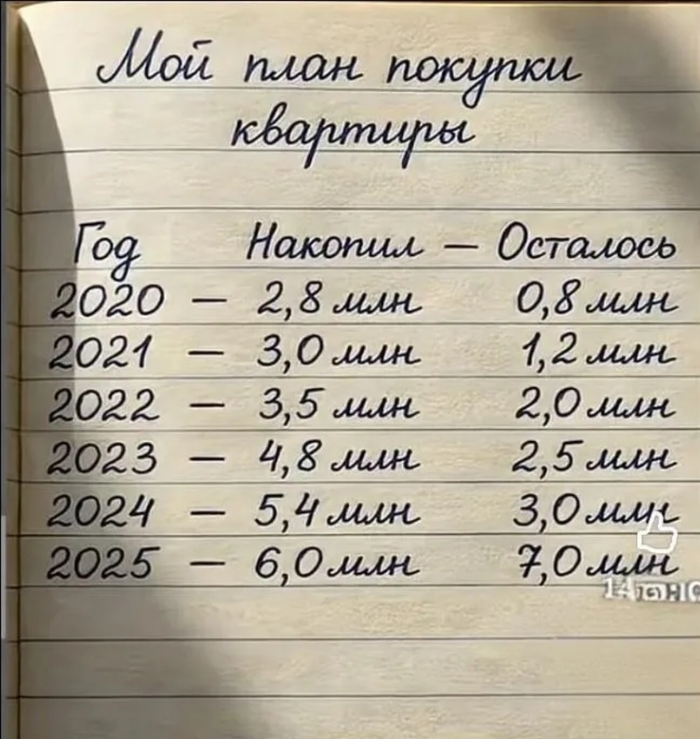 Мой план покупки
квартиры
Год Накопил — Осталось
2020 — 2,8 млн 0,8 млн
2021 — 3,0 млн 1,2 млн
2022 — 3,5 млн 2,0 млн
2023 — 4,8 млн 2,5 млн
2024 — 5,4 млн 3,0 млн
2025 — 6,0 млн 7,0 млн